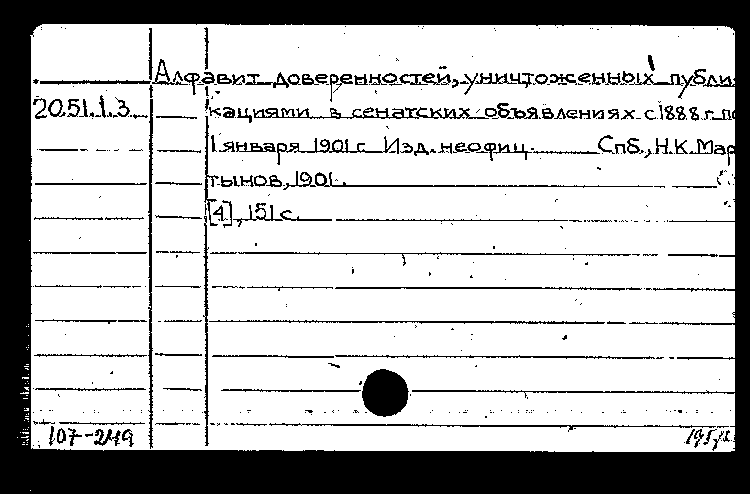 Алфавит доверенностей, уничтоженных публи-
20.51.1.3. кациями в сенатских объявлениях с 1888 г. по
1 января 1901 г. Изд. неофиц. Спб., Н.К. Мар
тынов, 1901.
[4], 151 с.
107-249